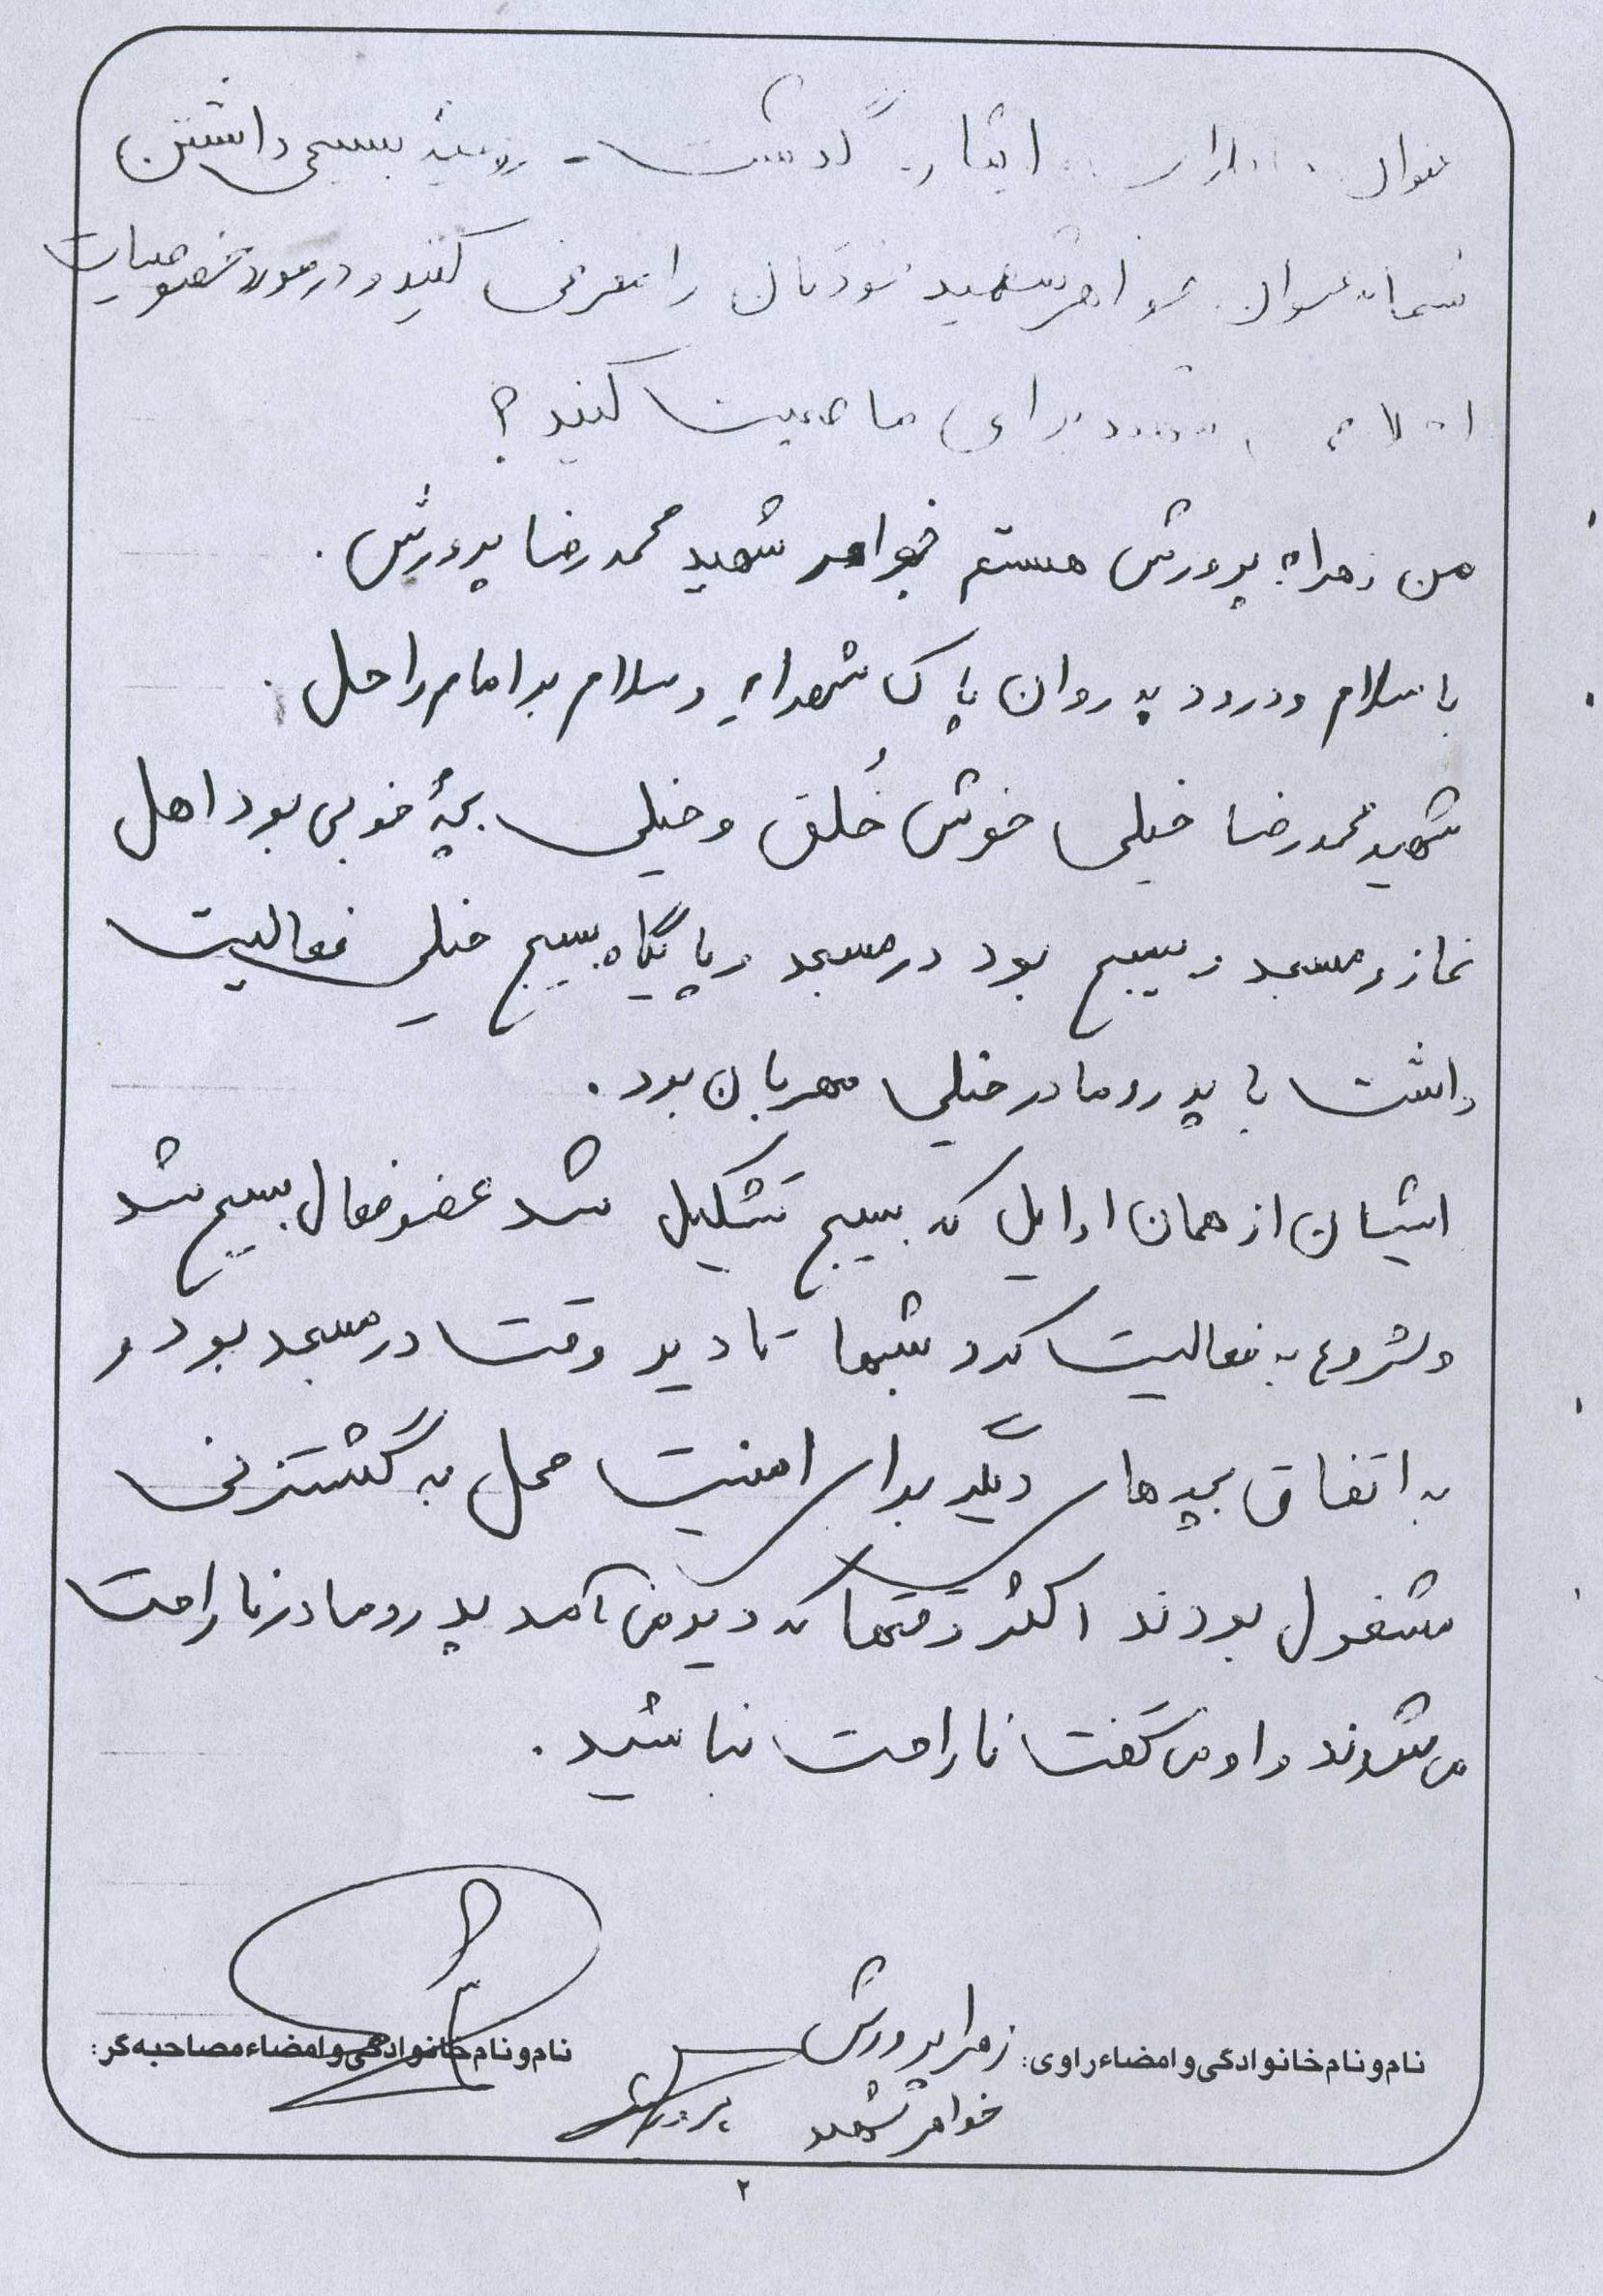 عنوان ایثار گذشت - روحیهٔ بسیجی داشتن
شما به عنوان خواهر شهید خودتان را معرفی کنید و در مورد خصوصیات
برای ما صحبت کنید؟
من زهراء پرورش هستم خواهر شهید محمدرضا پرورش.
با سلام و درود به روان پاک شهداء و سلام بر امام راحل.
شهید محمدرضا خیلی خوش خُلق و خیلی بچهٔ خوبی بود اهل
نماز و مسجد و بسیج بود در مسجد و پایگاه بسیج خیلی فعالیت
داشت با پدر و مادر خیلی مهربان بود.
ایشان از همان اوایل که بسیج تشکیل شد عضو فعال بسیج شد
و شروع به فعالیت کرد شبها تا دیر وقت در مسجد بود و
به اتفاق بچه های دیگر برای امنیت محل به گشتزنی
مشغول بودند اکثر وقتها که دیر می آمد پدر و مادر ناراحت
می شدند و او می گفت ناراحت نباشید.
نام و نام خانوادگی و امضاء راوی: زهرا پرورش
خواهر شهید
نام و نام خانوادگی و امضاء مصاحبه گر:
۲